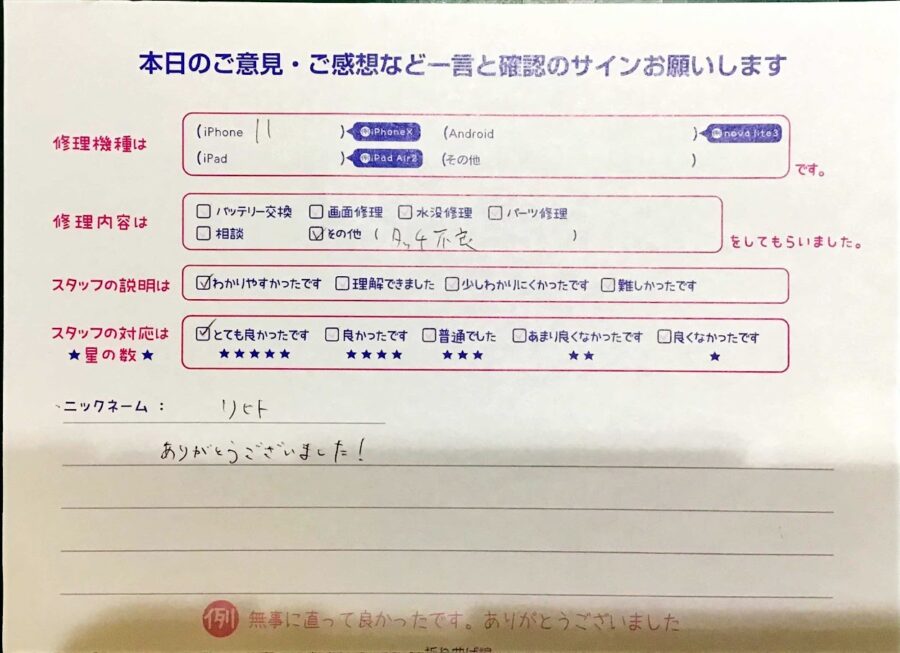 本日のご意見・ご感想など一言と確認のサインお願いします
修理機種は
(iPhone 11 ) 例iPhoneX (Android ) 例nova lite3
(iPad ) 例iPad Air2 (その他 ) です。
修理内容は
□バッテリー交換 □画面修理 □水没修理 □パーツ修理
□相談 ☑その他 ( タッチ不良 ) をしてもらいました。
スタッフの説明は ☑わかりやすかったです □理解できました □少しわかりにくかったです □難しかったです
スタッフの対応は ☑とても良かったです □良かったです □普通でした □あまり良くなかったです □良くなかったです
★星の数★ ★★★★★ ★★★★ ★★★ ★★ ★
ニックネーム： リヒト
ありがとうございました!
例 無事に直って良かったです。ありがとうございました